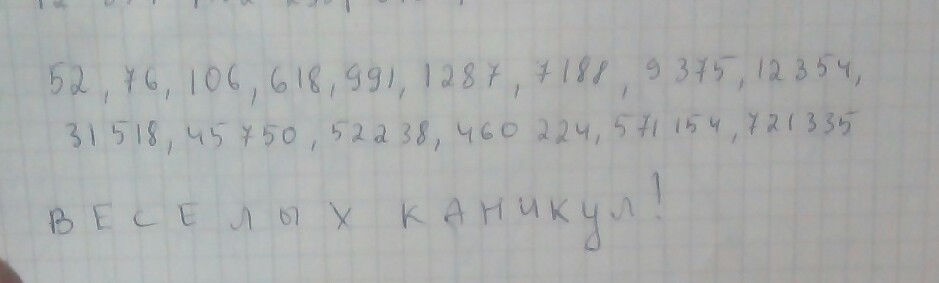 52, 76, 106, 618, 991, 1287, 7188, 9375, 12354,
31518, 45750, 52238, 460224, 571154, 721335
ВЕСЕЛЫХ КАНИКУЛ!